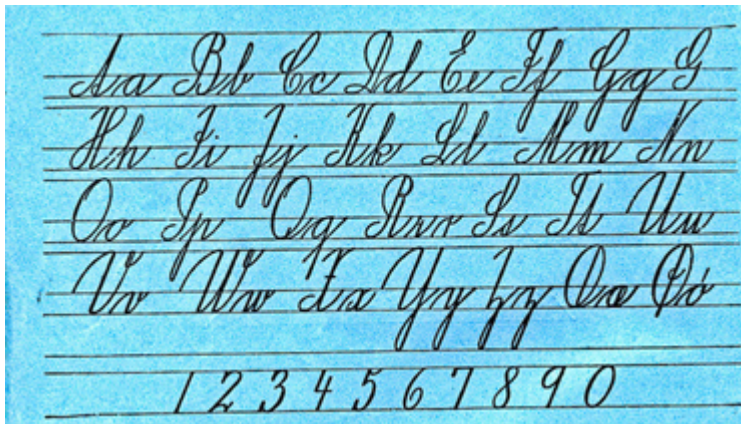 Aa Bb Cc Dd Ee Ff Gg G
Hh Ii Jj Kk Ll Mm Nn
Oo Pp Qq Rrr Ss Tt Uu
Vv Ww Xx Yy Zz Ææ Øø
1 2 3 4 5 6 7 8 9 0